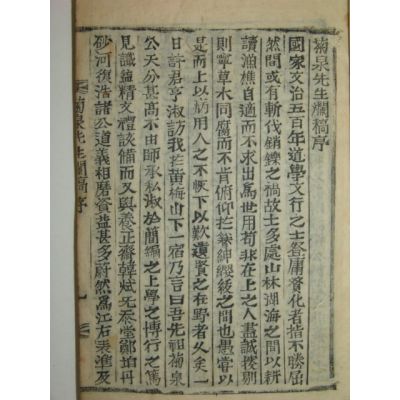 菊泉先生爛稿序
國家文治五百年道學文行之士登庸賛化者指不勝屈
然間或有斬伐銷鑠之禍故士多處山林湖海之間以耕
讀漁樵自適而不求出爲世用苟非在上之人盡誠搜剔
則寧草木同腐而不肯俯仰於紳纓緌之間也愚嘗以
是而上以病用人之不恢下以歎遺賢之在野者久矣一
日許君亨淑訪我於黃梅山下一宿乃言曰吾先祖菊泉
公天分甚高不由師承私淑於簡編之上學之博行之篤
見識蘊精文禮該備而又與養正齋韓斌无忝堂鄭珀丹
砂河復浩諸公道義相磨資益甚多蔚然爲江右表準及
菊泉先生爛稿序